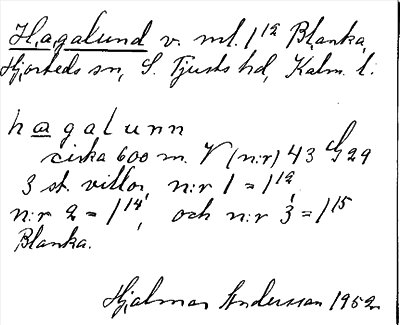 Hagalund v. mt. 1¹² Blanka,
Hjorteds sn, S. Tjusts hd, Kalm. l.
hagalunn
cirka 600 m. V (n:r) 43 G 29
3 st. villor, n:r 1 = 1¹²,
n:r 2 = 1¹⁴, och n:r 3 = 1¹⁵
Blanka.
Hjalmar Andersson 1952